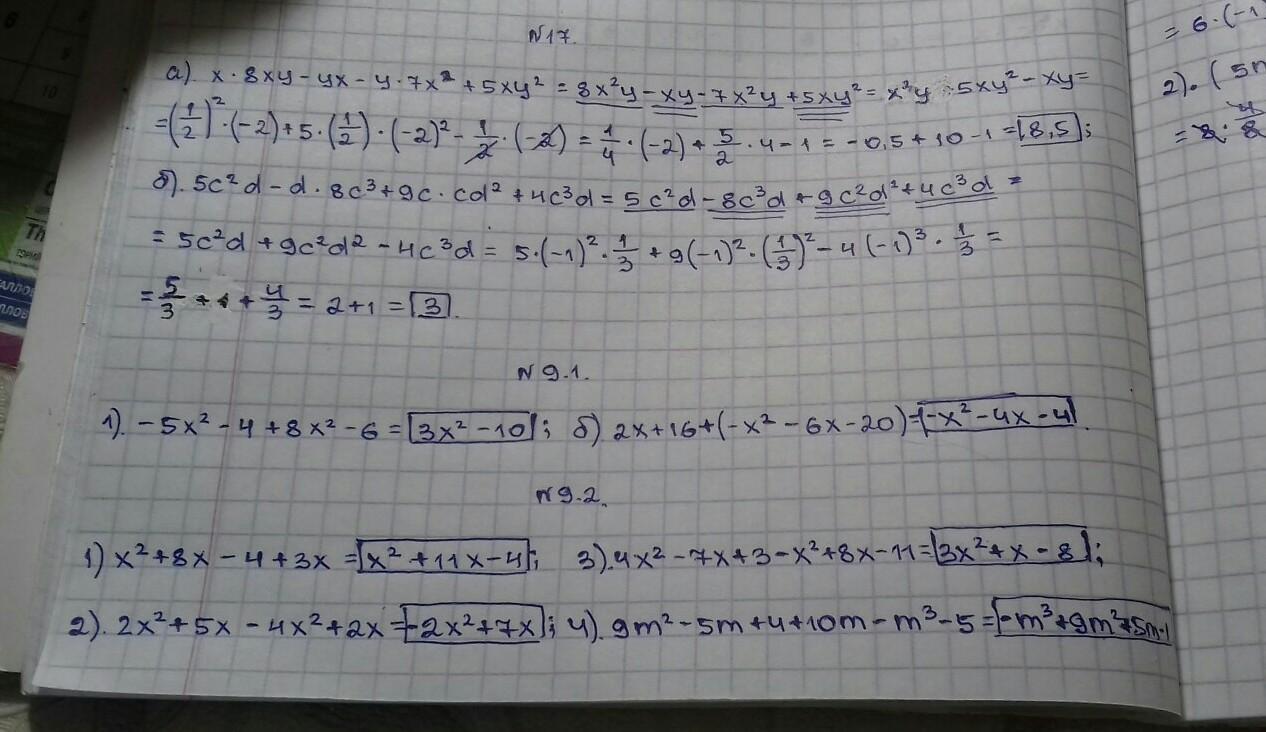 N17.
а). x · 8xy – yx – y · 7x² + 5xy² = 8x²y – xy – 7x²y + 5xy² = x²y + 5xy² – xy =
= (1/2)² · (–2) + 5 · (1/2) · (–2)² – 1/2 · (–2) = 1/4 · (–2) + 5/2 · 4 – 1 = –0,5 + 10 – 1 = 8,5;
б). 5c²d – d · 8c³ + 9c · cd² + 4c³d = 5c²d – 8c³d + 9c²d² + 4c³d =
= 5c²d + 9c²d² – 4c³d = 5 · (–1)² · 1/3 + 9(–1)² · (1/3)² – 4(–1)³ · 1/3 =
= 5/3 + 1 + 4/3 = 2 + 1 = 3.
N 9.1.
1). – 5x² – 4 + 8x² – 6 = 3x² – 10; б) 2x + 16 + (–x² – 6x – 20) = –x² – 4x – 4.
N 9.2.
1) x² + 8x – 4 + 3x = x² + 11x – 4; 3). 4x² – 7x + 3 – x² + 8x – 11 = 3x² + x – 8;
2). 2x² + 5x – 4x² + 2x = –2x² + 7x; 4). 9m² – 5m + 4 + 10m – m³ – 5 = –m³ + 9m² + 5m – 1
= 6 · (–1
2). (5